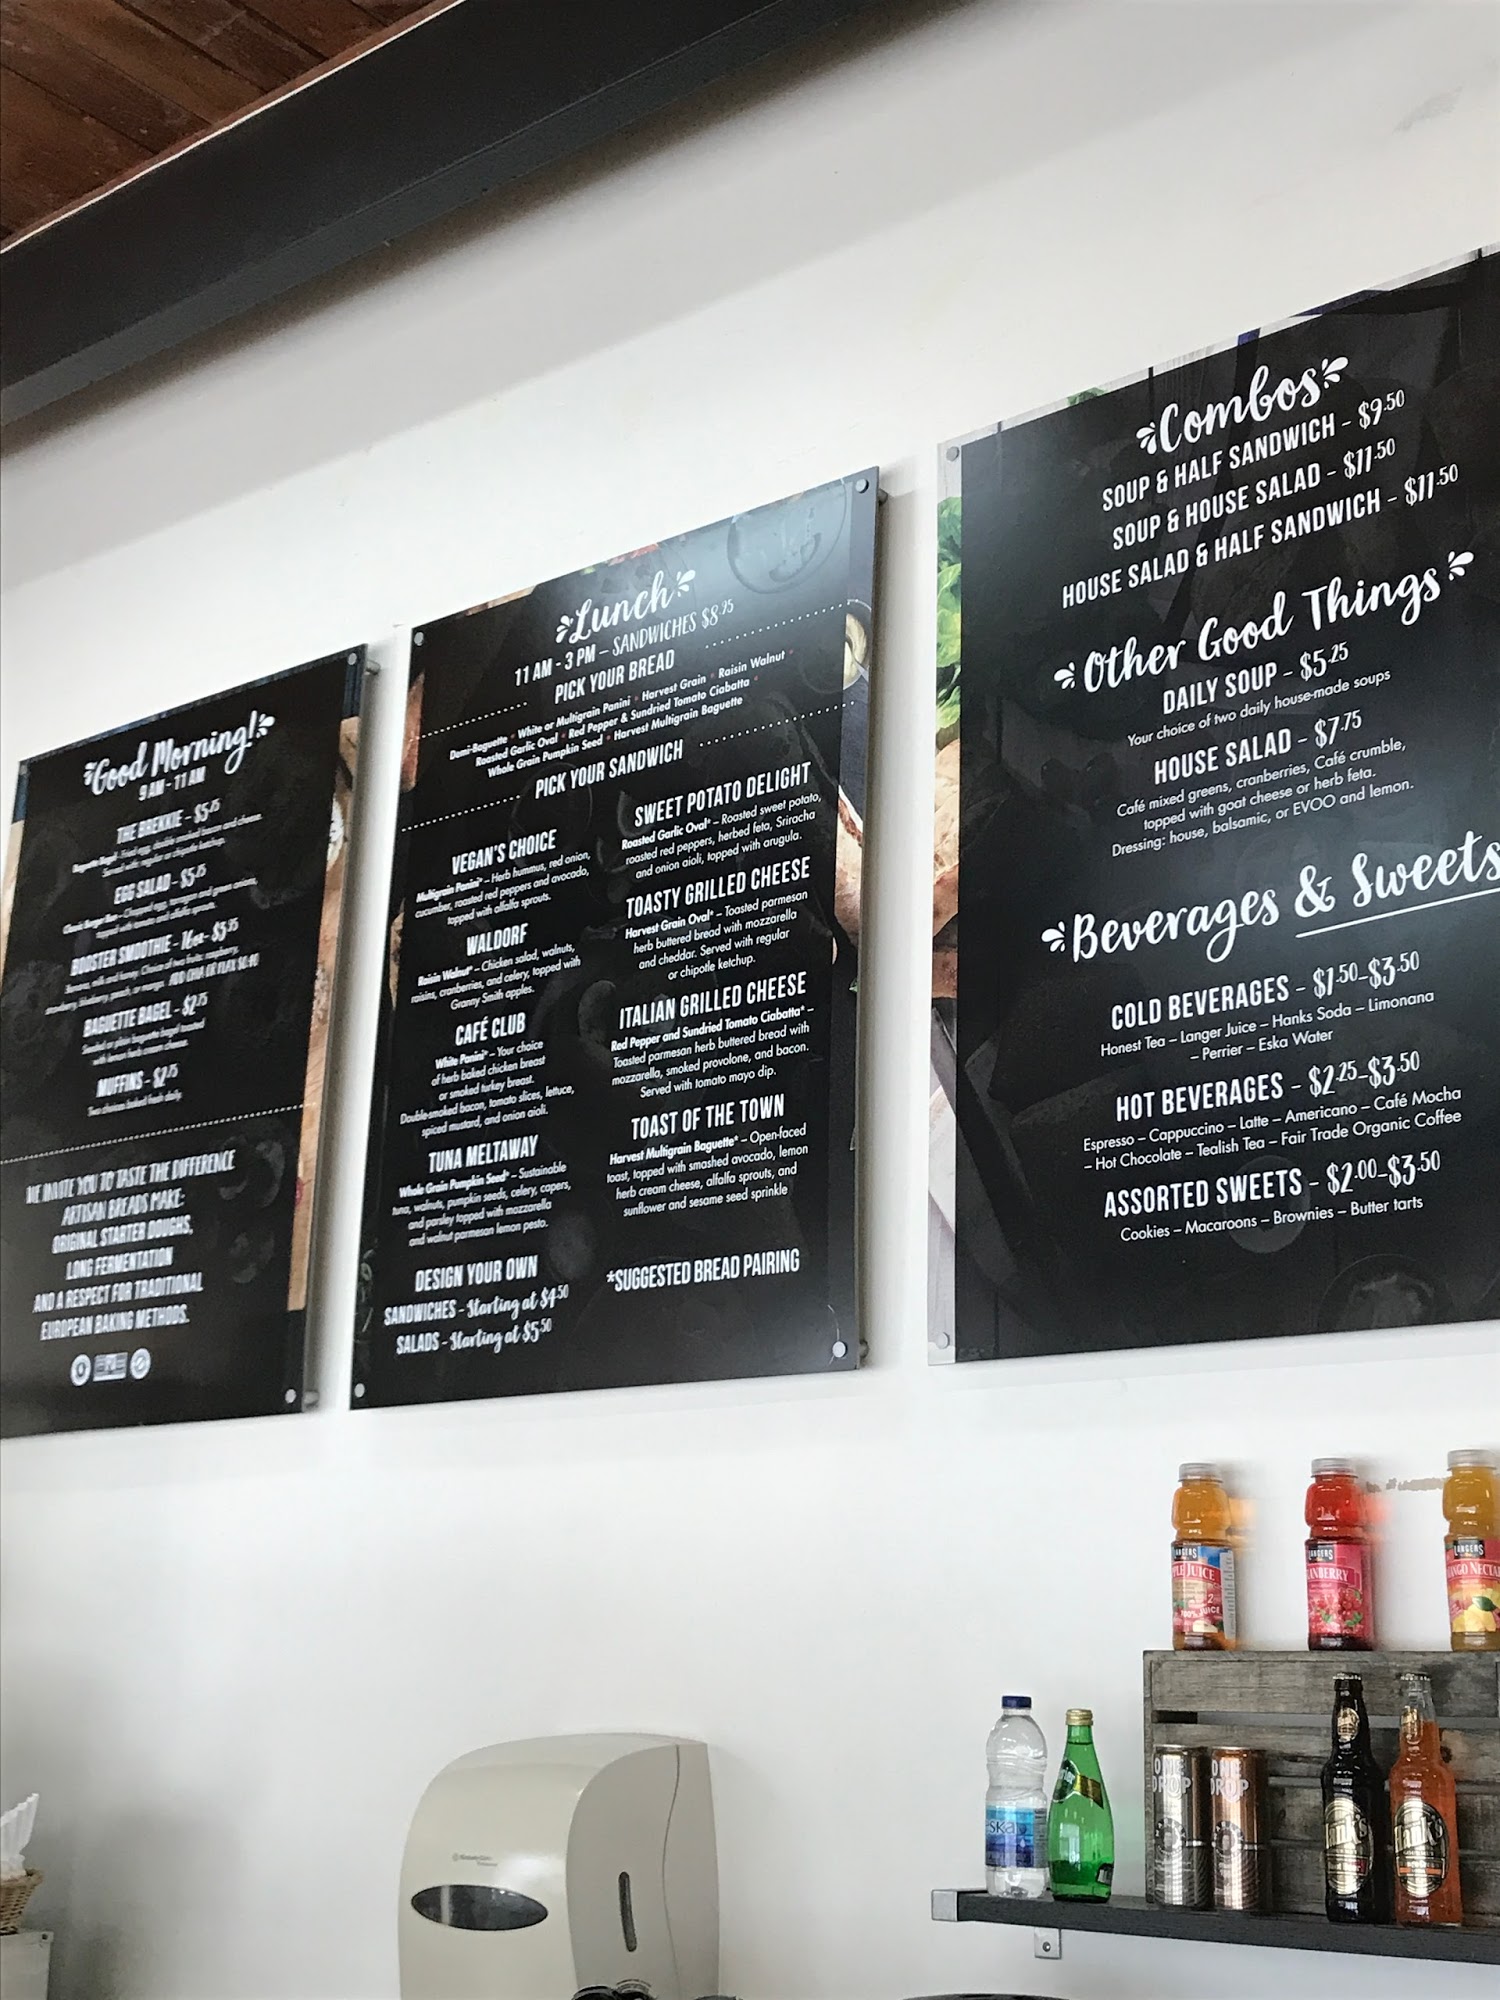 Good Morning!
9 AM - 11 AM
THE BREKKIE - $5.75
Served with regular or chipotle ketchup.
EGG SALAD - $5.75
topped with onions and alfalfa sprouts.
BOOSTER SMOOTHIE - 16oz - $5.95
Banana, milk and honey. Choice of two fruits: raspberry,
strawberry, blueberry, peach, or mango.
BAGUETTE BAGEL - $2.75
Seeded or plain baguette bagel toasted
with lemon herb cream cheese.
MUFFINS - $2.75
Two choices baked fresh daily.
WE INVITE YOU TO TASTE THE DIFFERENCE
ARTISAN BREADS MAKE:
ORIGINAL STARTER DOUGHS,
LONG FERMENTATION
AND A RESPECT FOR TRADITIONAL
EUROPEAN BAKING METHODS.
Lunch
11 AM - 3 PM – SANDWICHES $8.95
PICK YOUR BREAD
Demi-Baguette • White or Multigrain Panini • Harvest Grain • Raisin Walnut •
Roasted Garlic Oval • Red Pepper & Sundried Tomato Ciabatta •
Whole Grain Pumpkin Seed • Harvest Multigrain Baguette
PICK YOUR SANDWICH
VEGAN'S CHOICE
Multigrain Panini* – Herb hummus, red onion,
cucumber, roasted red peppers and avocado,
topped with alfalfa sprouts.
WALDORF
Raisin Walnut* – Chicken salad, walnuts,
raisins, cranberries, and celery, topped with
Granny Smith apples.
CAFÉ CLUB
White Panini* – Your choice
of herb baked chicken breast
or smoked turkey breast.
Double-smoked bacon, tomato slices, lettuce,
spiced mustard, and onion aioli.
TUNA MELTAWAY
Whole Grain Pumpkin Seed* – Sustainable
tuna, walnuts, pumpkin seeds, celery, capers,
and parsley topped with mozzarella
and walnut parmesan lemon pesto.
DESIGN YOUR OWN
SANDWICHES - Starting at $4.50
SALADS - Starting at $5.50
SWEET POTATO DELIGHT
Roasted Garlic Oval* – Roasted sweet potato,
roasted red peppers, herbed feta, Sriracha
and onion aioli, topped with arugula.
TOASTY GRILLED CHEESE
Harvest Grain Oval* – Toasted parmesan
herb buttered bread with mozzarella
and cheddar. Served with regular
or chipotle ketchup.
ITALIAN GRILLED CHEESE
Red Pepper and Sundried Tomato Ciabatta* –
Toasted parmesan herb buttered bread with
mozzarella, smoked provolone, and bacon.
Served with tomato mayo dip.
TOAST OF THE TOWN
Harvest Multigrain Baguette* – Open-faced
toast, topped with smashed avocado, lemon
herb cream cheese, alfalfa sprouts, and
sunflower and sesame seed sprinkle
*SUGGESTED BREAD PAIRING
Combos
SOUP & HALF SANDWICH - $9.50
SOUP & HOUSE SALAD - $11.50
HOUSE SALAD & HALF SANDWICH - $11.50
Other Good Things
DAILY SOUP - $5.25
Your choice of two daily house-made soups
HOUSE SALAD - $7.75
Café mixed greens, cranberries, Café crumble,
topped with goat cheese or herb feta.
Dressing: house, balsamic, or EVOO and lemon.
Beverages & Sweets
COLD BEVERAGES - $1.50-$3.50
Honest Tea – Langer Juice – Hanks Soda – Limonana
– Perrier – Eska Water
HOT BEVERAGES - $2.25-$3.50
Espresso – Cappuccino – Latte – Americano – Café Mocha
– Hot Chocolate – Tealish Tea – Fair Trade Organic Coffee
ASSORTED SWEETS - $2.00-$3.50
Cookies – Macaroons – Brownies – Butter tarts
LANGERS
JUICE
100% JUICE
ONE
DROP
ONE
DROP
Hank's
Hank's